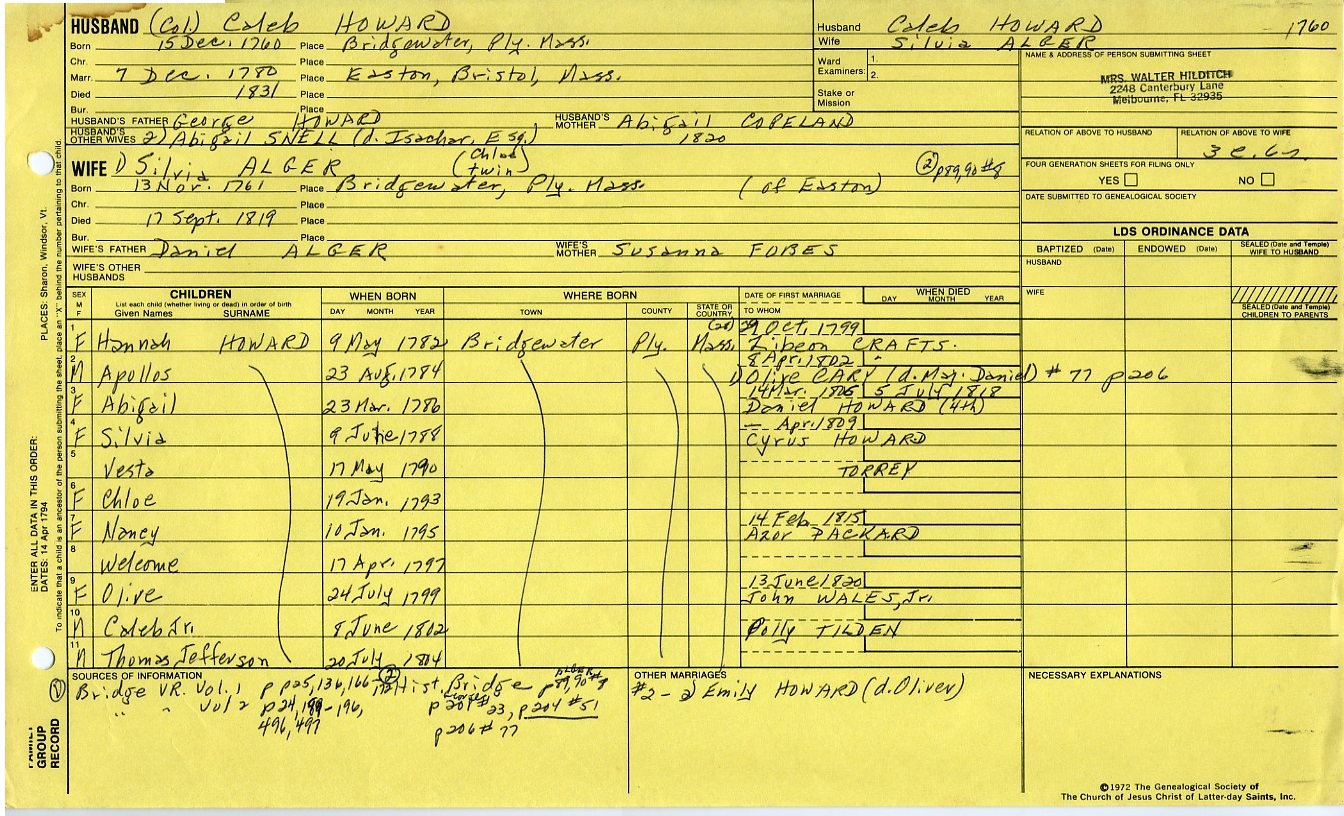 HUSBAND (Col.) Caleb HOWARD
Born 15 Dec. 1760 Place Bridgewater, Ply. Mass.
Chr. Place
Marr. 7 Dec. 1780 Place Easton, Bristol, Mass.
Died 1831 Place
Bur. Place
HUSBAND'S FATHER George HOWARD HUSBAND'S MOTHER Abigail COPELAND
HUSBAND'S OTHER WIVES 2) Abigail SNELL (d. Isachar, Esq.) 1820
Husband Caleb HOWARD 1760
Wife Silvia ALGER
Ward Examiners: 1.
2.
Stake or Mission
NAME & ADDRESS OF PERSON SUBMITTING SHEET
MRS. WALTER HILDITCH
2248 Canterbury Lane
Melbourne, FL 32935
RELATION OF ABOVE TO HUSBAND RELATION OF ABOVE TO WIFE
FOUR GENERATION SHEETS FOR FILING ONLY
YES NO
DATE SUBMITTED TO GENEALOGICAL SOCIETY
WIFE 1) Silvia ALGER (Chloe twin) (2) p89,90 #8
Born 13 Nov. 1761 Place Bridgewater, Ply. Mass. (of Easton)
Chr. Place
Died 17 Sept. 1819 Place
Bur. Place
WIFE'S FATHER Daniel ALGER WIFE'S MOTHER Susanna FOBES
WIFE'S OTHER HUSBANDS
LDS ORDINANCE DATA
BAPTIZED (Date) ENDOWED (Date) SEALED (Date and Temple) WIFE TO HUSBAND
HUSBAND
WIFE
SEALED (Date and Temple) CHILDREN TO PARENTS
SEX M F CHILDREN List each child (whether living or dead) in order of birth Given Names SURNAME WHEN BORN DAY MONTH YEAR WHERE BORN TOWN COUNTY STATE OR COUNTRY DATE OF FIRST MARRIAGE TO WHOM WHEN DIED DAY MONTH YEAR
1 F Hannah HOWARD 9 May 1782 Bridgewater Ply. Mass. (20) 29 Oct. 1799
Zibeon CRAFTS.
2 M Apollos 23 Aug. 1784 8 Apr. 1802
1) Olive CARY (d. Maj. Daniel) # 77 p 206
3 F Abigail 23 Mar. 1786 14 Mar. 1805 5 July 1818
Daniel HOWARD (4th)
4 F Silvia 9 June 1788 — Apr. 1809
Cyrus HOWARD
5 Vesta 17 May 1790 TORREY
6 F Chloe 19 Jan. 1793
7 F Nancy 10 Jan. 1795 14 Feb. 1815
Azor PACKARD
8 Welcome 17 Apr. 1797
9 F Olive 24 July 1799 13 June 1820
John WALES, Jr.
10 M Caleb Jr. 8 June 1802 Polly TILDEN
11 M Thomas Jefferson 20 July 1804
SOURCES OF INFORMATION
(1) Bridge VR. Vol. 1 p p25, 136, 166- (2) Hist. Bridge ALGER p89,90 #8
" " Vol 2 p24, 196, p 201 # 23, p 204 # 51
496, 497 p 206 # 77
OTHER MARRIAGES
#2 - 2) Emily HOWARD (d. Oliver)
NECESSARY EXPLANATIONS
FAMILY GROUP RECORD
ENTER ALL DATA IN THIS ORDER:
DATES: 14 Apr 1794 PLACES: Sharon, Windsor, Vt.
To indicate that a child is an ancestor of the person submitting the sheet, place an "X" behind the number pertaining to that child.
©1972 The Genealogical Society of
The Church of Jesus Christ of Latter-day Saints, Inc.